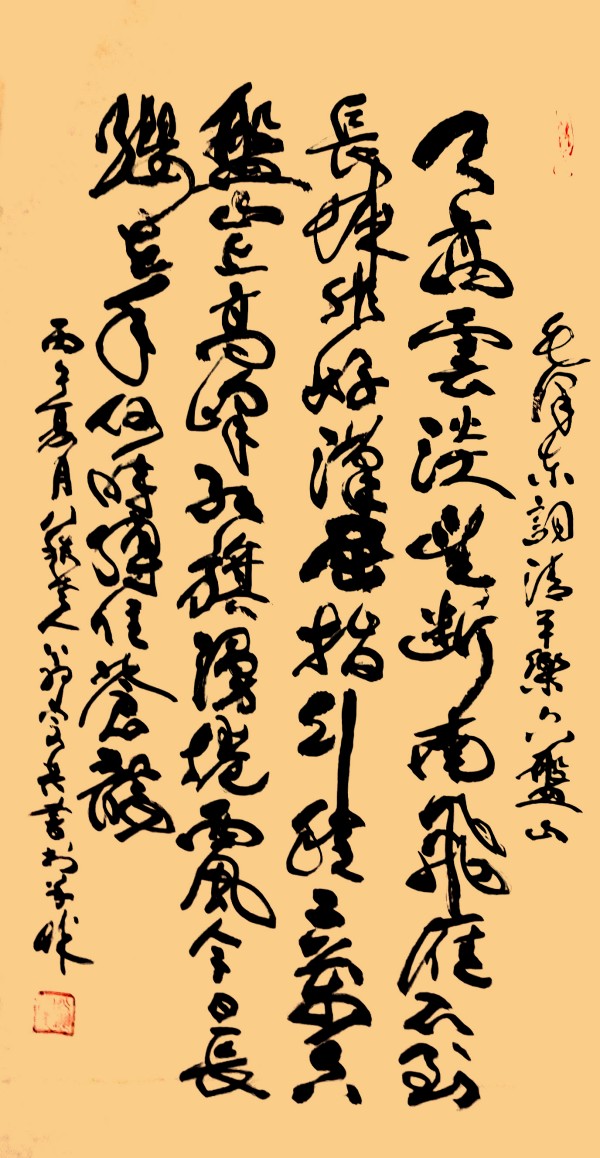 毛澤东詞清平樂六盤山
天高雲淡望斷南飛雁不到
長城非好漢屈指行程二萬六
盤山上高峰紅旗漫捲西風今日長
纓在手何時縛住蒼龍
丙午夏月 書於羊城